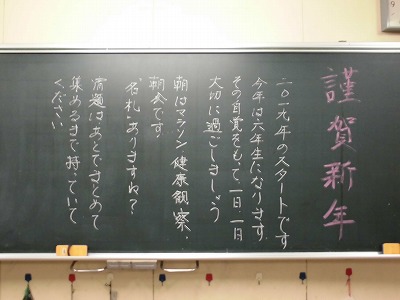 謹賀新年
二〇一九年のスタートです
今年は六年生になります。
その自覚をもって、一日一日
大切に過ごしましょう
朝はマラソン、健康観察、
朝会です。
名札、ありますね？
宿題はあとでまとめて
集めるまで持っていて
ください。